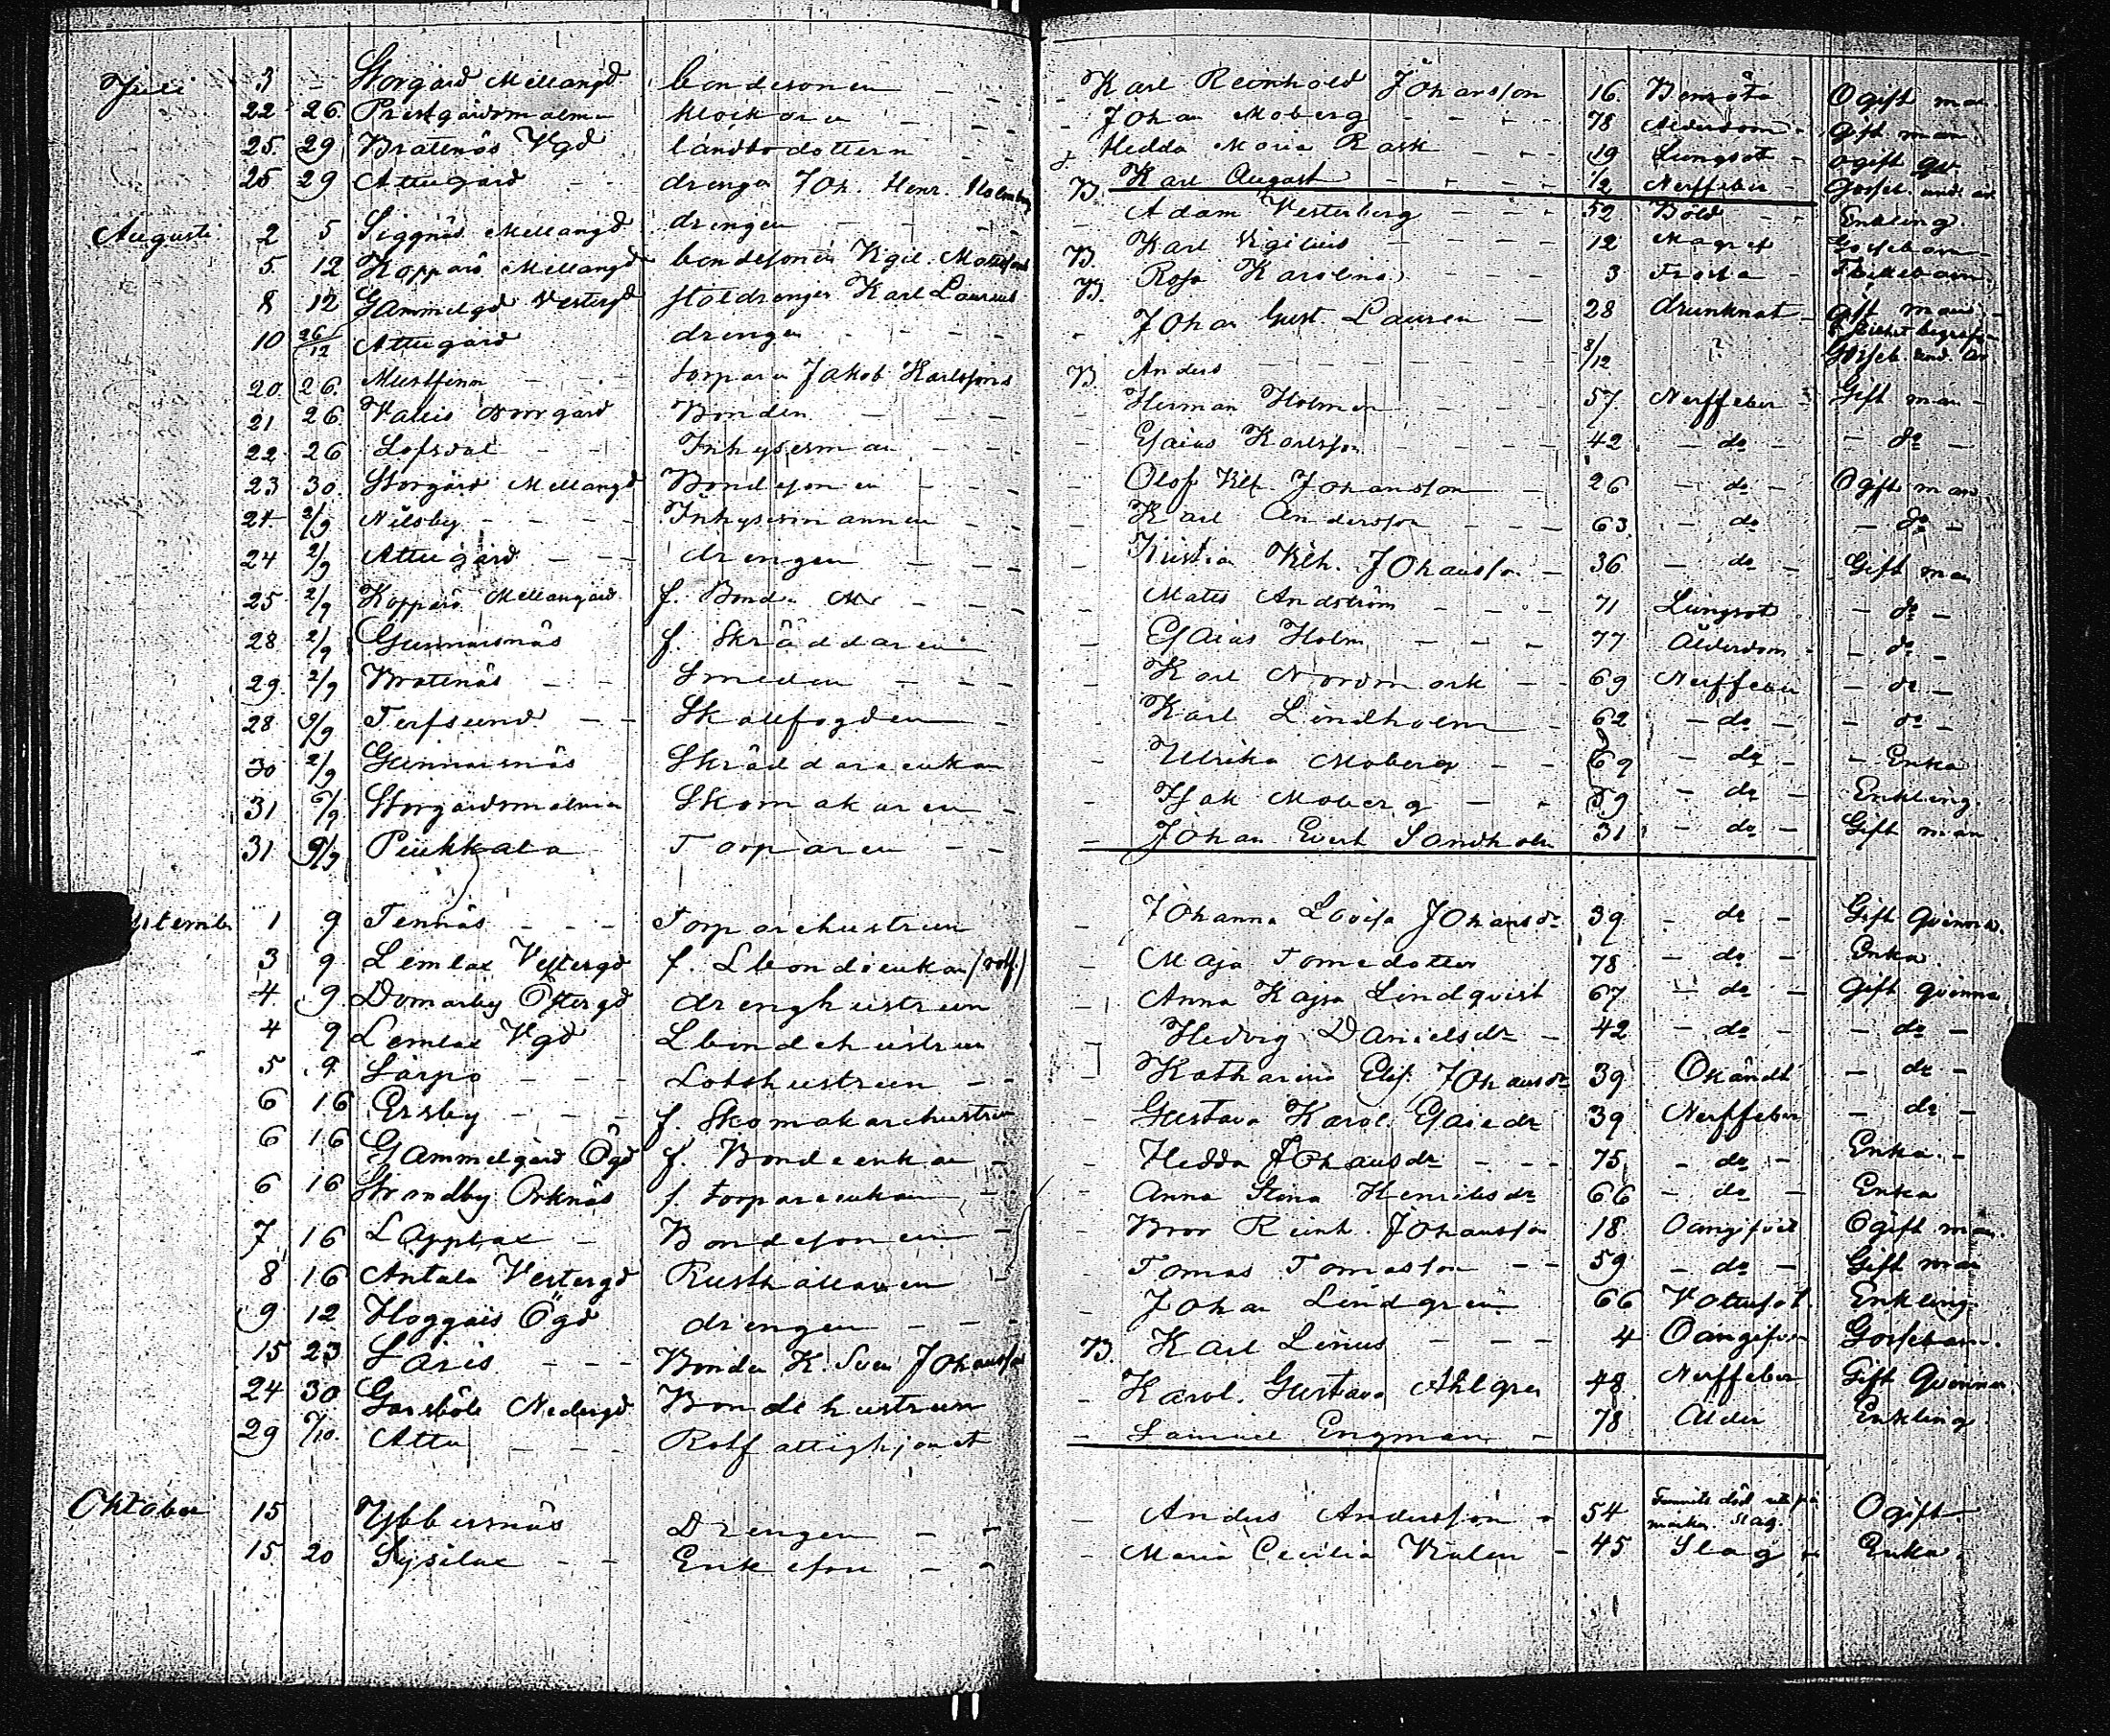 Juli 3 – Storgård Mellangd bondesonen – – Karl Reinhold Johansson 16. Benröta Ogift man.
22 26. Prestgårdsmalmen klockaren – – – Johan Moberg – – – 78 Ålderdom – Gift man
25. 29 Bratenäs Vgd landbodottern – – Hedda Maria Rask – – – 19 Lungsot – ogift qv.
25 29 Attugård – – drengen Joh. Henr. Holmberg B. Karl August – – – – 1/2 Nerffeber – Gosseb. und. år
Augusti 2 5 Siggnäs Mellangd drengen – – – – Adam Vesterberg – – – 52 Böld – – Enkling.
5. 12 Kopparö Mellangd bondesonen Vigil. B. Karl Vigilius – – – – 12 Magref Gossebarn –
8 12 Gammelgd Vestergd statdrengen Karl Laurens B. Rosa Karolina 3 Frossa – Flickebarn
10 26/12 Attugård drengen – – – – – Johan Gust. Lauren – 28 drunknat – gift man –
20. 26. Mustfinn – – – torparen Jakob Karlssons B. Anders – – – – – – 8/12 ? Gosseb. und. år
21 26 Vallis Norrgård Bonden – – – – Herman Holmen – – – 57 Nerffeber – Gift man –
22. 26 Lofsdal – – Inhysesman – – – Esaias Karlsson – – – 42 – do – – do –
23 30. Storgård Mellangd Bondesonen – – – Olof Vilh. Johansson – 26 – do – Ogift man
24 2/9 Nilsby – – – – Inhysesmannen – – – Karl Andersson – – – 63 – do – do –
24 2/9 Attugård – – – drengen – – – Kristian Vilh. Johansson – 36 – do – Gift man
25 2/9 Kopparö Mellangård f. Bonden – – – Mats Andström – – – 71 Lungsot – do –
28 2/9 Gunnarsnäs f. Skräddaren – Esaias Holm – – – 77 Ålderdom – – do –
29. 2/9 Bratenäs – – Smeden – – – – Karl Nordmark – – 69 Nerffeber – do –
28 9/9 Terfsund – – Skallfogden – – Karl Lindholm – 62 – do – – do –
30 2/9 Gunnarsnäs Skräddareenkan – Ulrika Moberg – – 69 – do – – Enka
31 6/9 Storgårdsmalmen Skomakaren – – Isak Moberg – – 59 – do – Enkling.
31 9/9 Piukkala Torparen – – – Johan Evert Sandholm 31 – do – Gift man
September 1 9 Tennäs – – – Torparehustrun – Johanna Lovisa Johansdr 39 – do – Gift Qvinna.
3 9 Lemlax Vestergd f. Lbondeenkan (rotf.) – Maja Tomedotter 78 – do – Enka.
4 9 Domarby Östergd drenghustrun – Anna Kajsa Lindqvist 67 – do – Gift qvinna
4 9 Lemlax Vgd Lbondehustrun – Hedvig Danielsdr – 42 – do – – do –
5 9 Särpo – – – Lotshustrun – – – Katharina Elis. Johansdr 39 Okändt – do –
6 16 Ersby – – – f. Skomakarehustrun – Gustava Karol. Esaiedr 39 Nerffeber – do –
6 16 Gammelgård Ögd f. Bondeenkan – – Hedda Johansdr – – – 75 – do – Enka. –
6 16 Strandby Orknäs f. Torpareenkan – – Anna Stina Henriksdr 66 – do – Enka
7 16 Lapplax – Bondesonen – – Bror Reinh. Johansson 18. Oangifvet Ogift man.
8 16 Antala Vestergd Rusthållaren – – Tomas Tomasson – – 59 – do – Gift man
9 12 Haggais Ögd drengen – – – – Johan Lindgren 66 Vattusot. Enkling.
15 23 Laris – – – Bonden K. Sven Johansson B. Karl Linus – – – 4 Oangifven Gossebarn.
24 30 Garsböle Nedergd Bondehustrun – Karol. Gustava Ahlgren 48. Nerffeber Gift Qvinna.
29 7/10. Attu – – – Rotfattighjonet – Samuel Engman – 78 Ålder Enkling.
Oktober 15 Ybbersnäs Drengen – – – Anders Andersson – 54 död ute på marken. Slag. Ogift
15 20 Sysilax – – Enkefru – – – Maria Cecilia – 45 Slag – Enka.